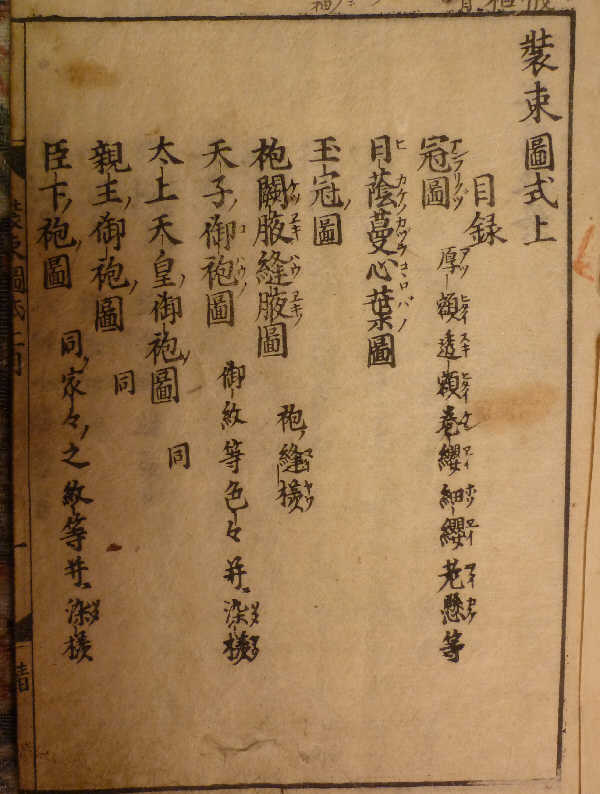 装束圖式上
目録
冠圖 厚額透額巻纓細纓老懸等
日蔭蔓心葉圖
玉冠ノ圖
袍闕腋縫腋圖 袍ノ縫様
天子ノ御袍圖 御紋等色々并染様
太上天皇ノ御袍ノ圖 同
親王ノ御袍ノ圖 同
臣下ノ袍ノ圖 同ノ家々ノ之紋等并染様